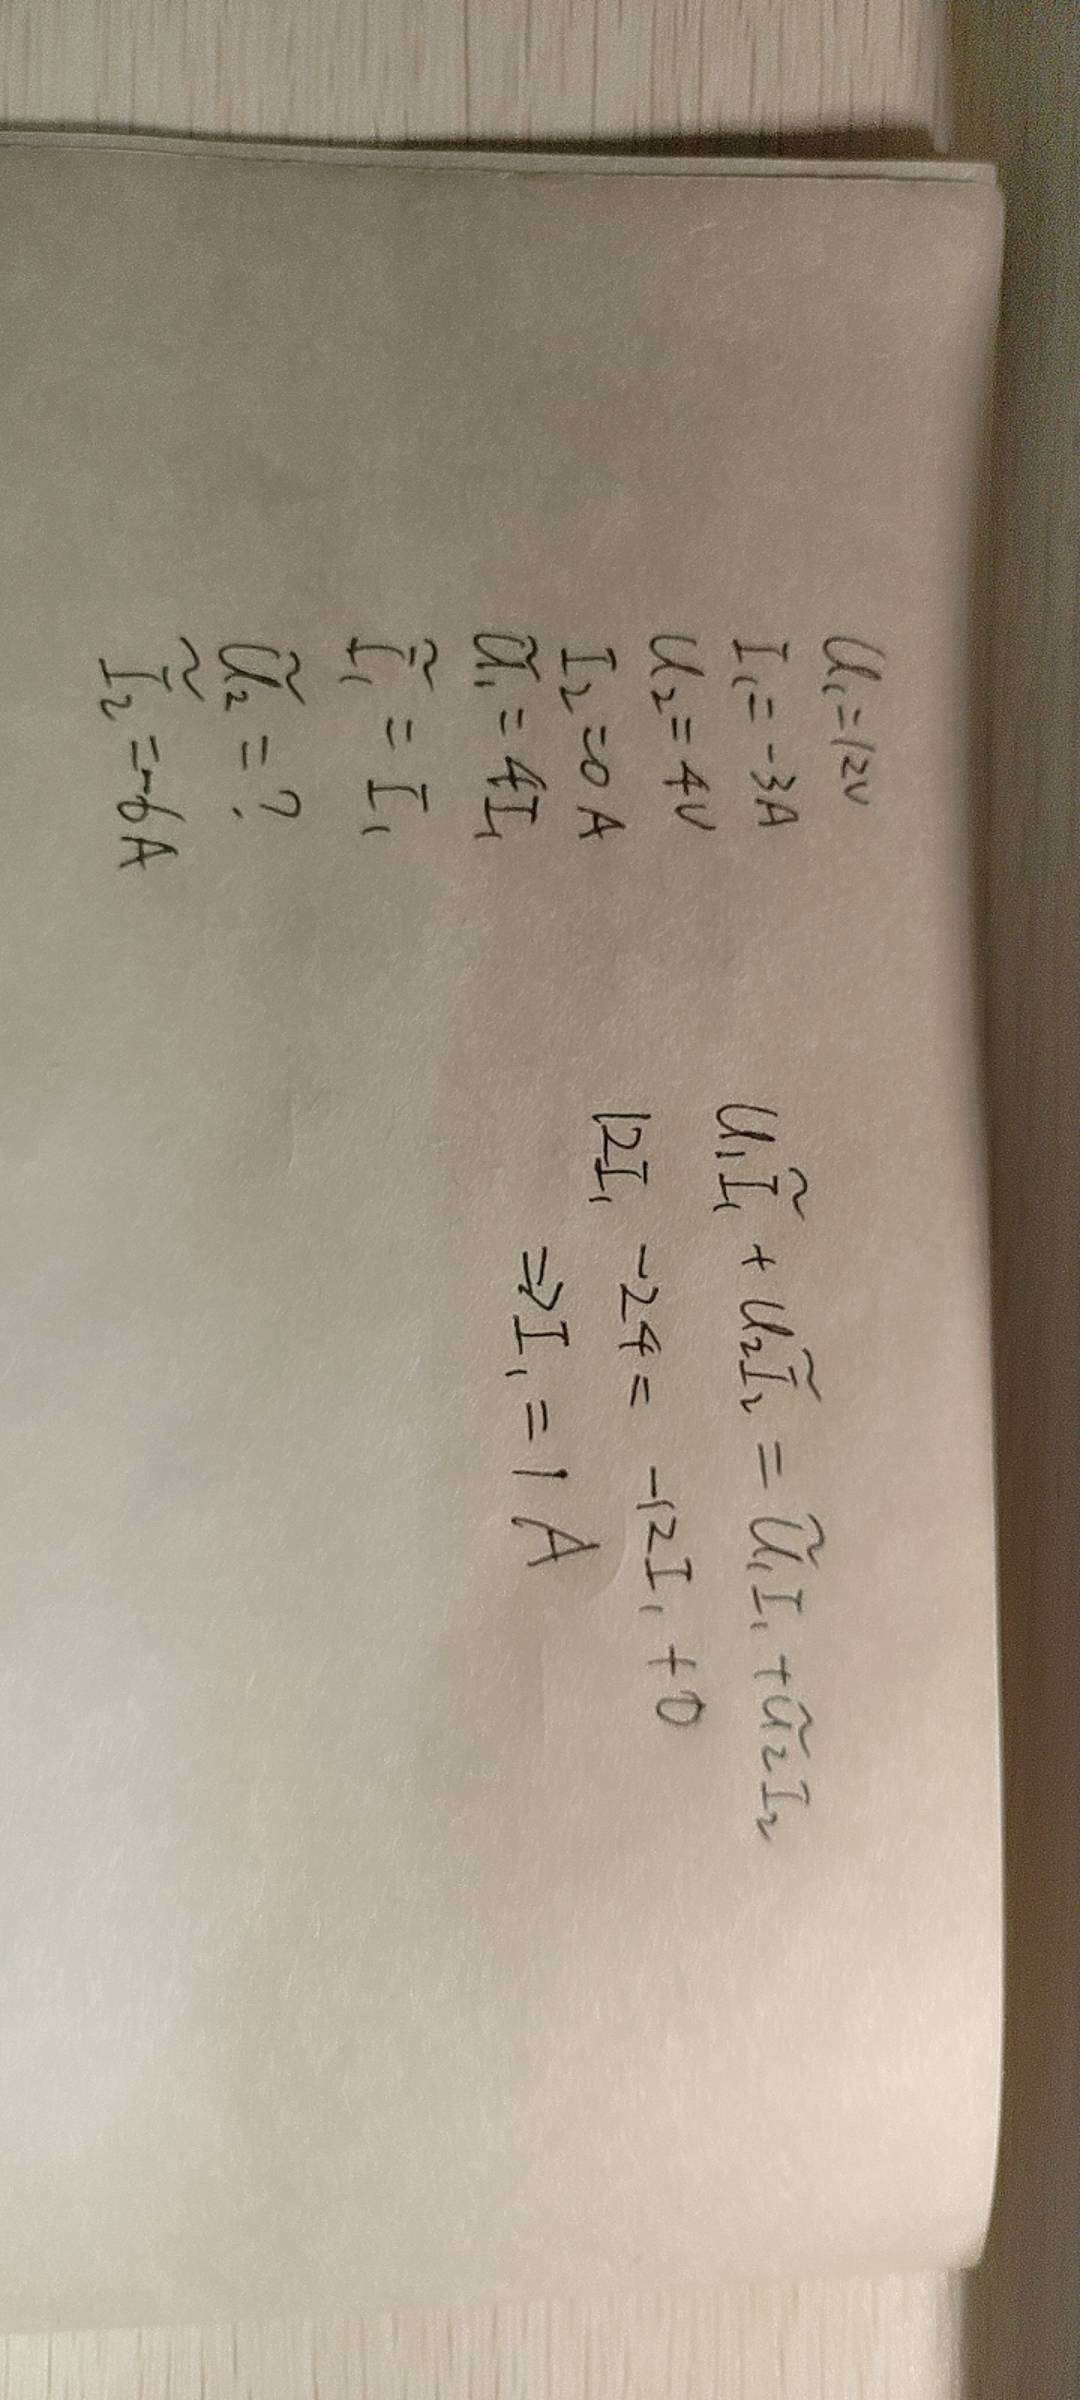 U₁=12V
I₁=-3A
U₂=4V
I₂=0A
Ũ₁=4I₁
Ĩ₁=I₁
Ũ₂=?
Ĩ₂=-6A
U₁Ĩ₁+U₂Ĩ₂=Ũ₁I₁+Ũ₂I₂
12I₁-24=-12I₁+0
⇒I₁=1A